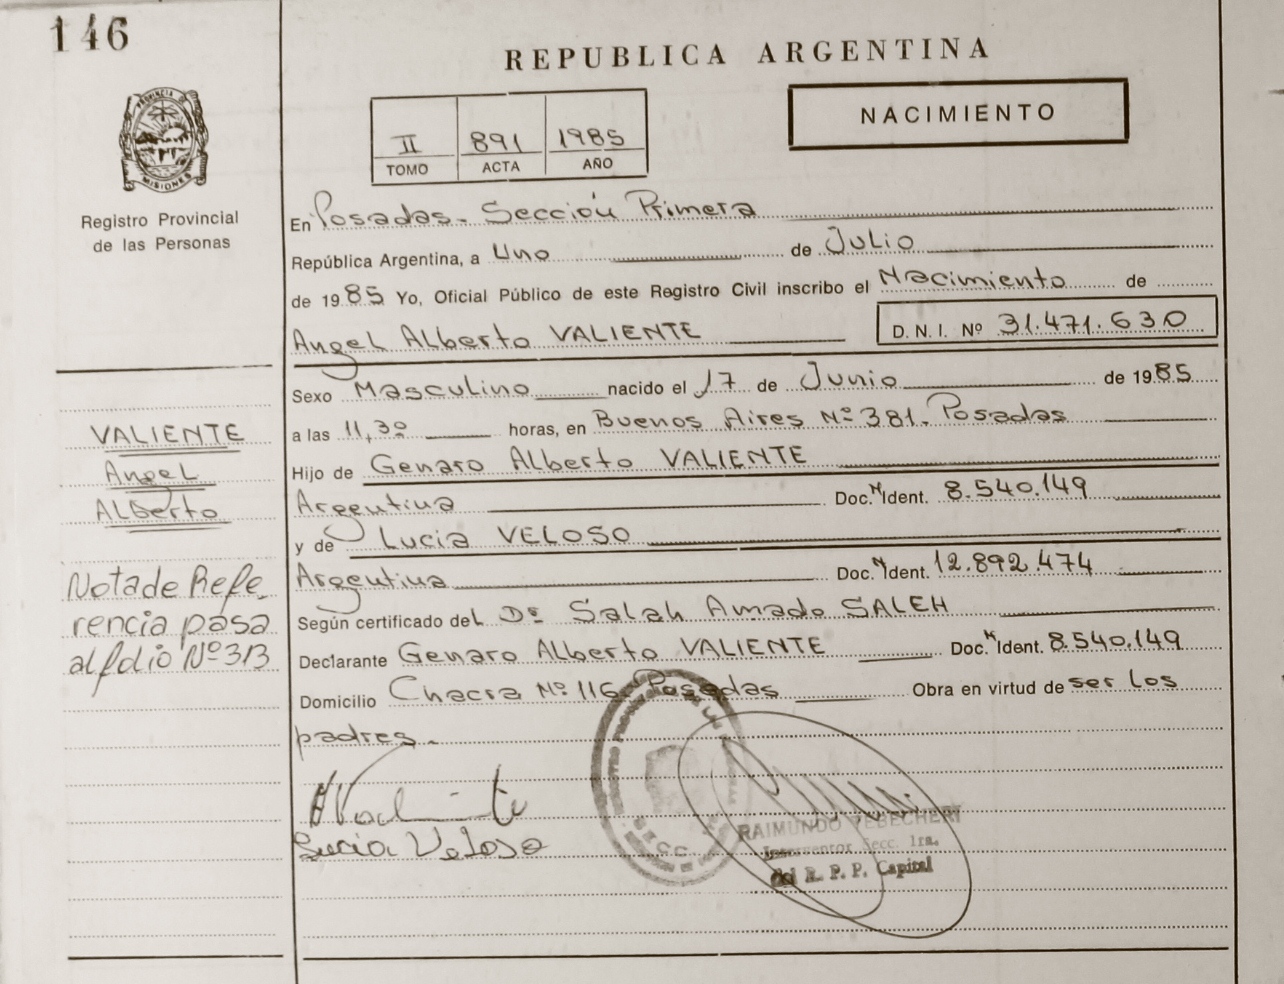 146
REPUBLICA ARGENTINA
NACIMIENTO
II 891 1985
TOMO ACTA AÑO
PROVINCIA
MISIONES
Registro Provincial
de las Personas
En Posadas. Sección Primera
República Argentina, a Uno de Julio
de 1985 Yo, Oficial Público de este Registro Civil inscribo el Nacimiento de
Angel Alberto VALIENTE D. N. I. Nº 31.471.630
Sexo Masculino nacido el 17 de Junio de 1985
a las 11,30 horas, en Buenos Aires Nº 381. Posadas
Hijo de Genaro Alberto VALIENTE
Argentina Doc. N Ident. 8.540.149
y de Lucia VELOSO
Argentina Doc. N Ident. 12.892.474
Según certificado del Dr. Salah Amado SALEH
Declarante Genaro Alberto VALIENTE Doc. N Ident. 8.540.149
Domicilio Chacra Nº 116 Posadas Obra en virtud de ser los
padres.
VALIENTE
Angel
Alberto
Nota de Refe-
rencia pasa
al folio Nº 313
Lucia Veloso
RAIMUNDO YEBECHERI
Interventor Secc. 1ra.
del R. P. P. Capital